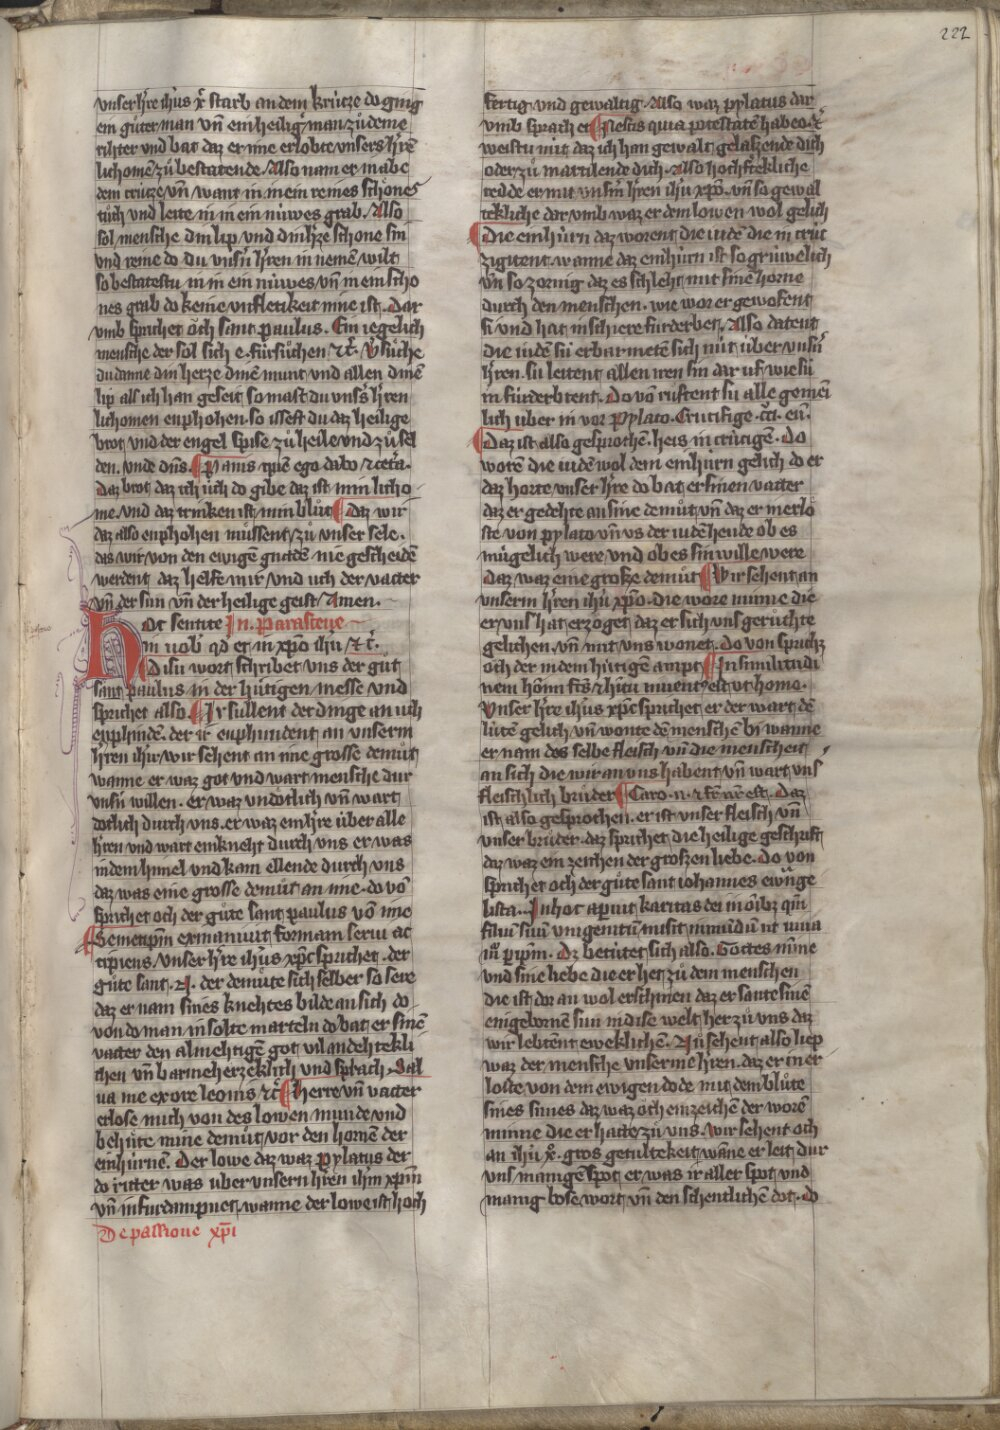 222
vnser hre ihus xp̄ starb an dem krúcze do ging
ein gůter man vn̄ ein heilig̉ man zů deme
rihter vnd bat daz er ime erlobte vnsers hrē
lichomē zů bestatende. Also nam er in abe
dem crúcze vn̄ want in in ein reines schônes
tůch vnd leite in in ein núwes grab. Also
sol mensche din lip vnd din h̉ze schone sin
vnd reine do du vnsn̄ hren in nemē wilt
so bestatestu in in ein núwes vn̄ in ein scho
nes grab do keine vnfletikeit inne ist. Dar
vmb sprichet ôch sant paulus. Ein iegelich
mensche der sol sich e. fúrsůchen ⁊c̄. v̉sůche
du danne din herze dinē munt vnd allen dinē
lip als ich han geseit so maht du vns̉s h̉ren
lichomen enphohen. so issest du daz heilige
brot vnd der engel spise zů heile vnd zů sel
den. vnde dn̄s. Panis quē ego dabo ⁊ cetͣa.
Daz brot daz ich úch do gibe daz ist min licho
me. vnd daz trinken ist min blůt Daz wir
daz also enphohen mûssent zů vnser sele.
das wir von den ewigē gnadē nie gescheidē
werdent daz helfe mir vnd uch der vatter
vn̄ der sun vn̄ der heilige geist Amen.
Hoc sentite In. Parasceue
in uob̉ qd et in xp̄o ihu ⁊c̄.
Disu wort schribet vns der gůt
sant paulus in der hútigen messe vnd
sprichet also. Ir sullent der dinge an uch
enphindē. der ir enphundent an vnserm
h̉ren ihu wir sehent an ime grosse demůt
wanne er waz got vnd wart mensche dur
vnsn̄ willen. er waz vndôtlich vn̄ wart
dotlich durch vns. er waz ein h̉re úber alle
h̉ren vnd wart ein kneht durch vns er was
in dem himel vnd kam ellende durch vns
daz was eine grosse demůt an ime. do vō
sprichet och der gůte sant paulus vō ime
Semetip̄m exinaniuit formam serui ac
cipiens. vnser h̉re ihus xp̄c sprichet. der
gůte sant .P. der demûte sich selber so sere
daz er nam sines knehtes bilde an sich do
von do man in solte marteln do bat er sinē
vatter den almehtigē got vil andehtekli
chen vn̄ barmeherzeklich vnd sprach. Sal
ua me ex ore leonis ⁊c̄ Herre vn̄ vatter
erlose mich von des lowen munde vnd
behûte mine demůt vor den hornē der
einhúrnē. Der lowe daz waz pylatus der
do ritter was uber vnsern h̉ren ihm̄ xp̄m̄
vn̄ in furdampnet. wanne der lowe ist hoch
De passione xp̄i
fertig vnd gewaltig. Also waz pylatus dar
vmb sprach er Nescis quia potestatē habeo. ⁊c̄
weistu nút daz ich han gewalt gelaszende dich
oder zů martilende dich. Also hochfertekliche
redde er mit vnsm̄ h̉ren ihu xp̄o. vn̄ so gewal
tekliche dar vmb waz er dem lowen wol gelich
Die einhúrn daz worent die iudē die in crúc
zigitent. wanne daz einhúrn ist so grúwelich
vn̄ so zornig daz es schleht mit sinē horne
durch den menschen. wie wor er gewofent
si vnd hat in schiere fúrderbet. Also datent
die iudē sú erbarmetē sich nút úber vnsn̄
h̉ren. sú leitent allen iren sin dar uf wie sú
in fúrderbtent. Do vō růftent sú alle gemei
lich uber in vor Pylato. Crucifige. cͣc. eū.
Daz ist also gesprochē. heis in crúcigē. Do
worē die iudē wol dem einhúrn gelich do er
daz horte vnser h̉re do bat er sinen vatter
daz er gedehte an sine demůt vn̄ daz er in erlô
ste von pylato vn̄ vs der iudē hende ob es
múgelich were vnd ob es sin wille were
Daz waz eine grosze demůt Wir sehent an
vnserm h̉ren ihu xp̄o. die wore minne die
er vns hat erzôget daz er sich vns gerůchte
gelichen. vn̄ mit vns wonet. do von sprichz
och der in dem hútigen ampt In similitudi
nem hōim fc̄s ⁊ hītu inuent̉ est vt homo.
Vnser h̉re ihus xp̄c sprichet er der wart dē
lútē gelich vn̄ wonte dē menschē bi wanne
er nam des selbe fleisch vn̄ die menscheit
an sich die wir an vns habent vn̄ wart vns̉
fleischlich brůder Caro .n. ⁊ fr̄ nr̄ est. Daz
ist also gesprochen. er ist vnser fleisch vn̄
vnser brůder. daz sprichet die heilige geschrift
daz waz ein zeichen der groszen liebe. Do von
sprichet och der gůte sant iohannes ewāge
lista. In hoc aparuit karitas dei in ōibz qm̄
filiū suū vnigenitū misit in mūdū ut viua
mꝰ p̲ ip̄m. Dz betútet sich also. Gottes mīne
vnd sine liebe die er het zů dem menschen
die ist dar an wol erschinen daz er sante sinē
eingebornē sun in dise welt her zů vns daz
wir lebtent eweklichē. Nů sehent also liep
waz der mensche vnserme h̉ren. daz er in er
loste von dem ewigen dode mit dem blůte
sines sunes daz waz och ein zeichē der worē
minne die er hatte zů vns. wir sehent och
an ihu xp̄o. gros gedultekeit wāne er leit dur
vns manigē spot. er was ir aller spot vnd
manig bose wort vn̄ den schentlichē dot. do